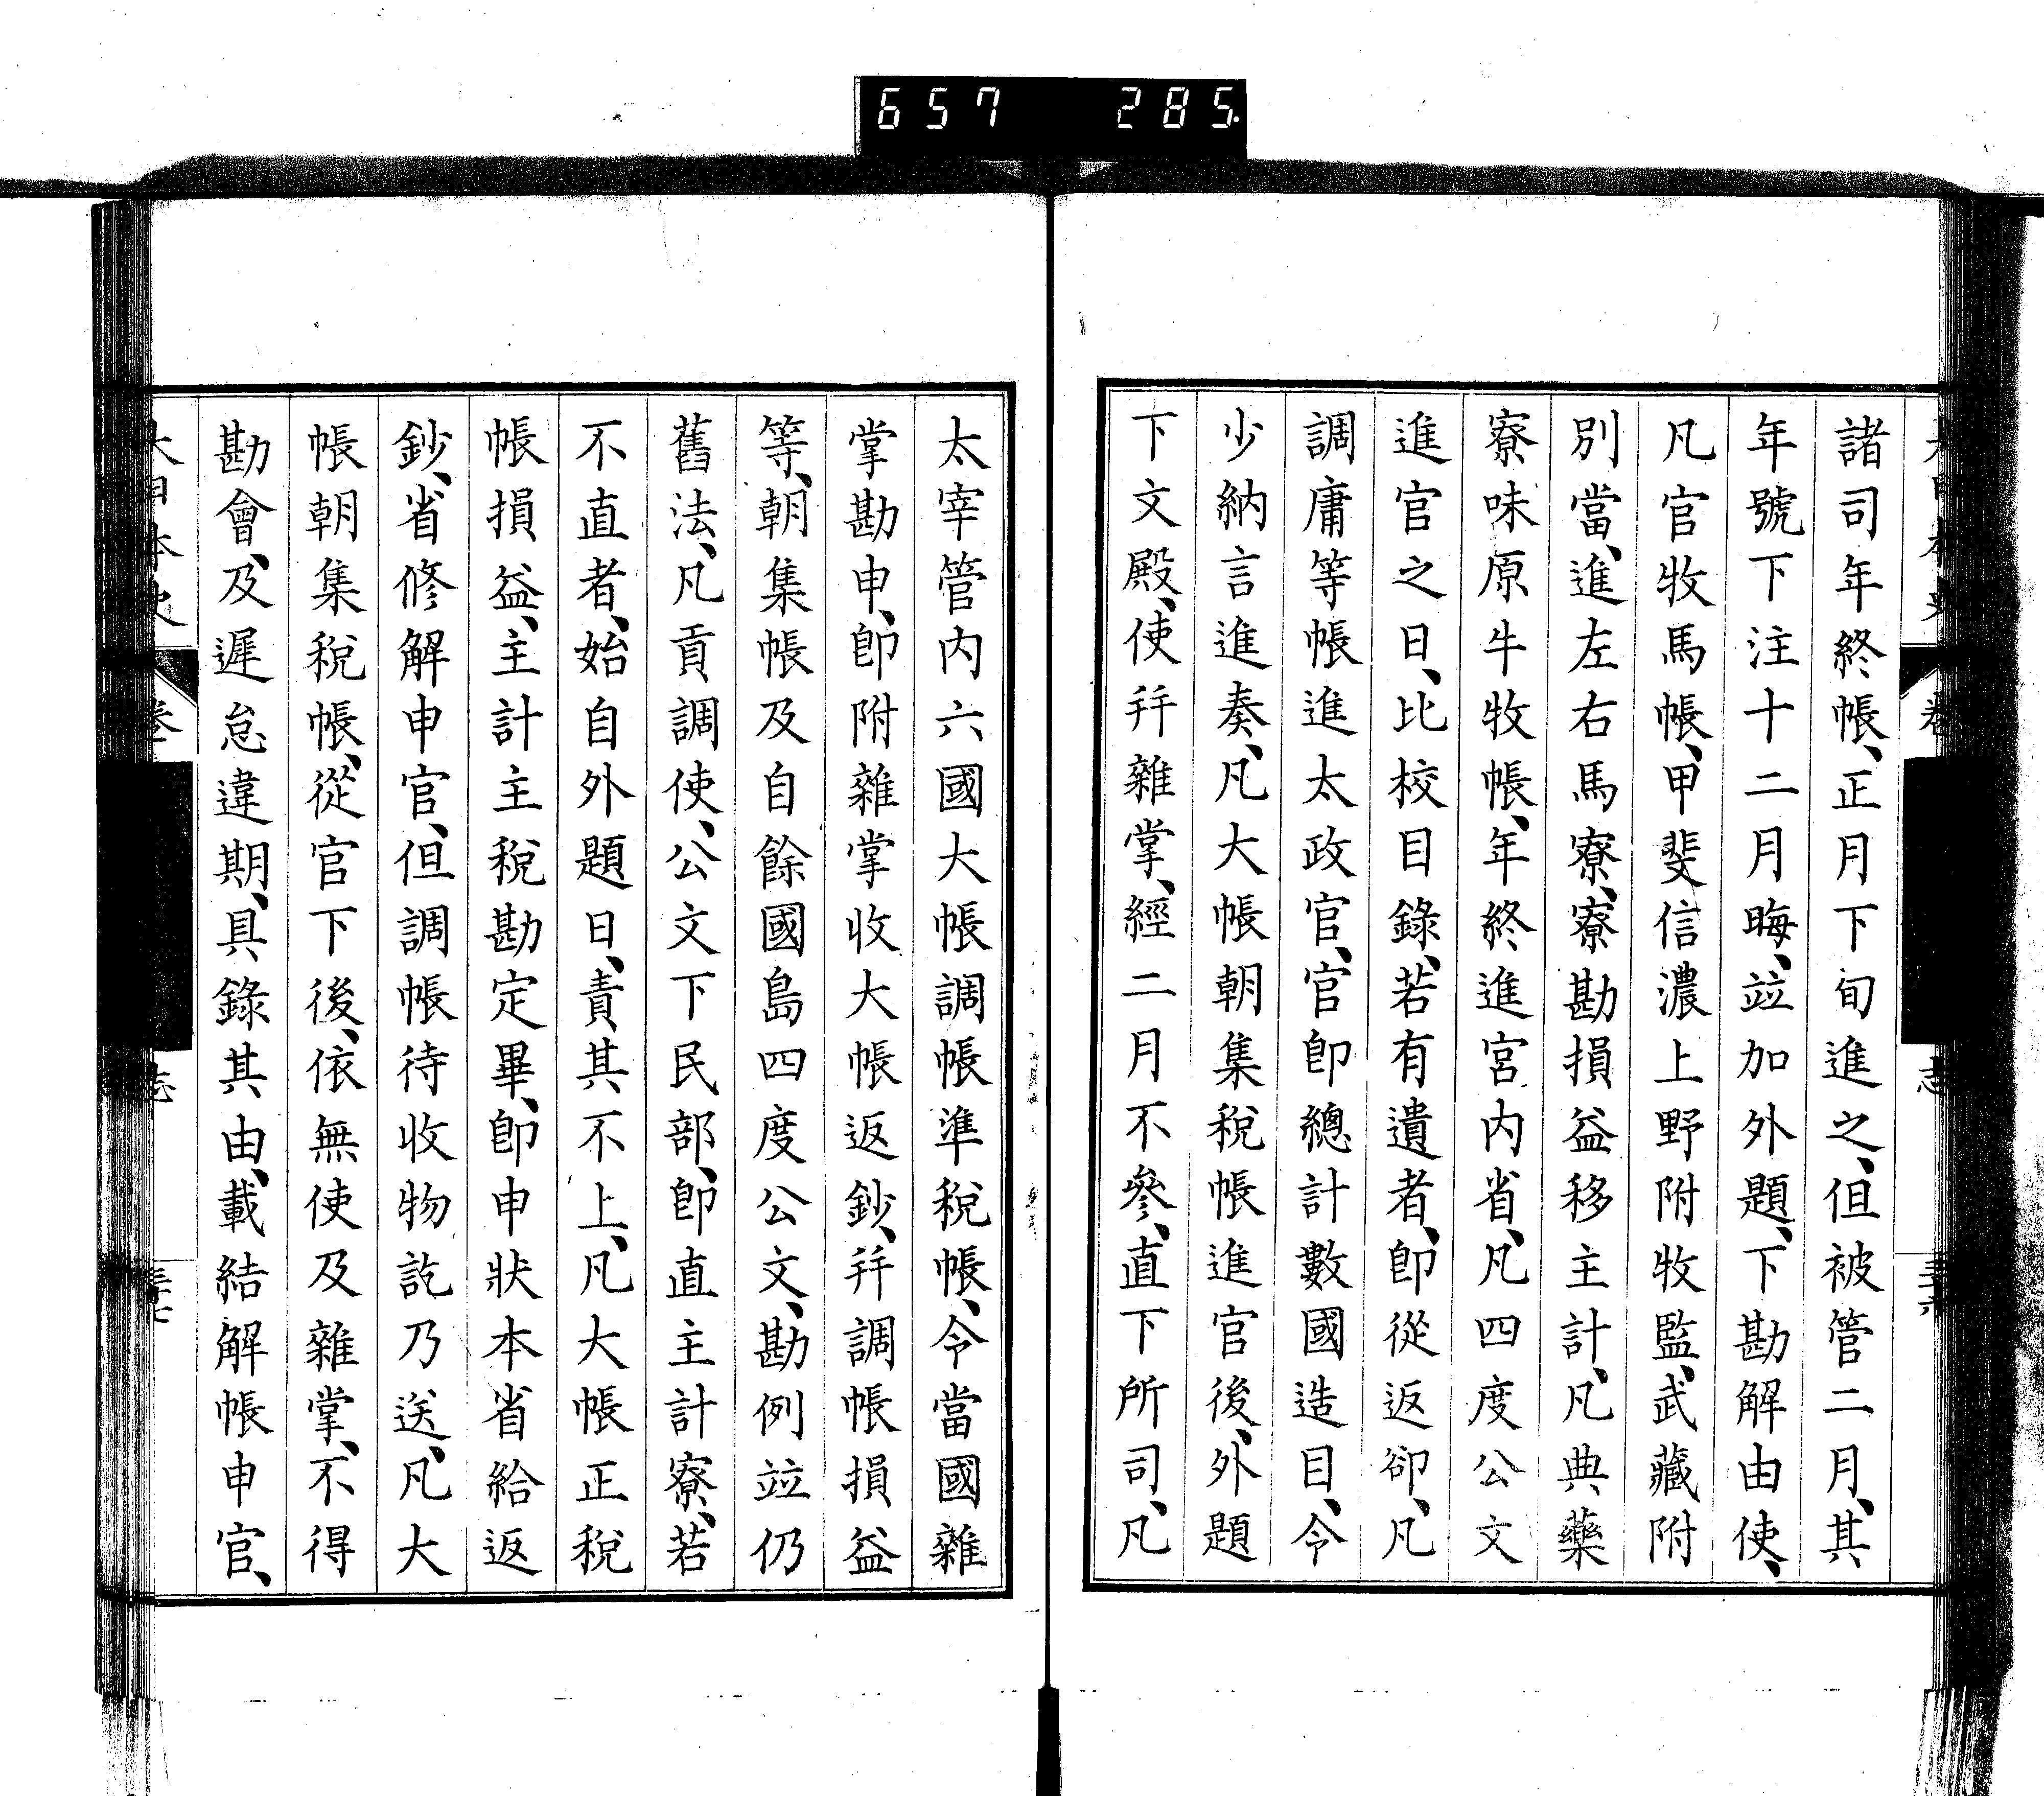 657 285
諸司年終帳、正月下旬進之、但被管二月、其
年號下注十二月晦、竝加外題、下勘解由使、
凡官牧馬帳、甲斐信濃上野附牧監、武藏附
別當、進左右馬寮、寮勘損益移主計、凡典藥
寮味原牛牧帳、年終進宮內省、凡四度公文
進官之日、比校目錄、若有遺者、卽從返卻、凡
調庸等帳進太政官、官卽總計數國造目、令
少納言進奏、凡大帳朝集稅帳進官後、外題
下文殿、使幷雜掌、經二月不參、直下所司、凡
太宰管內六國大帳調帳準稅帳、令當國雜
掌勘申、卽附雜掌收大帳返鈔、幷調帳損益
等、朝集帳及自餘國島四度公文、勘例竝仍
舊法、凡貢調使、公文下民部、卽直主計寮、若
不直者、始自外題日、責其不上、凡大帳正稅
帳損益、主計主稅勘定畢、卽申狀本省給返
鈔、省修解申官、但調帳待收物訖乃送、凡大
帳朝集稅帳、從官下後、依無使及雜掌、不得
勘會、及遲怠違期、具錄其由、載結解帳申官、
大日本史 卷 志